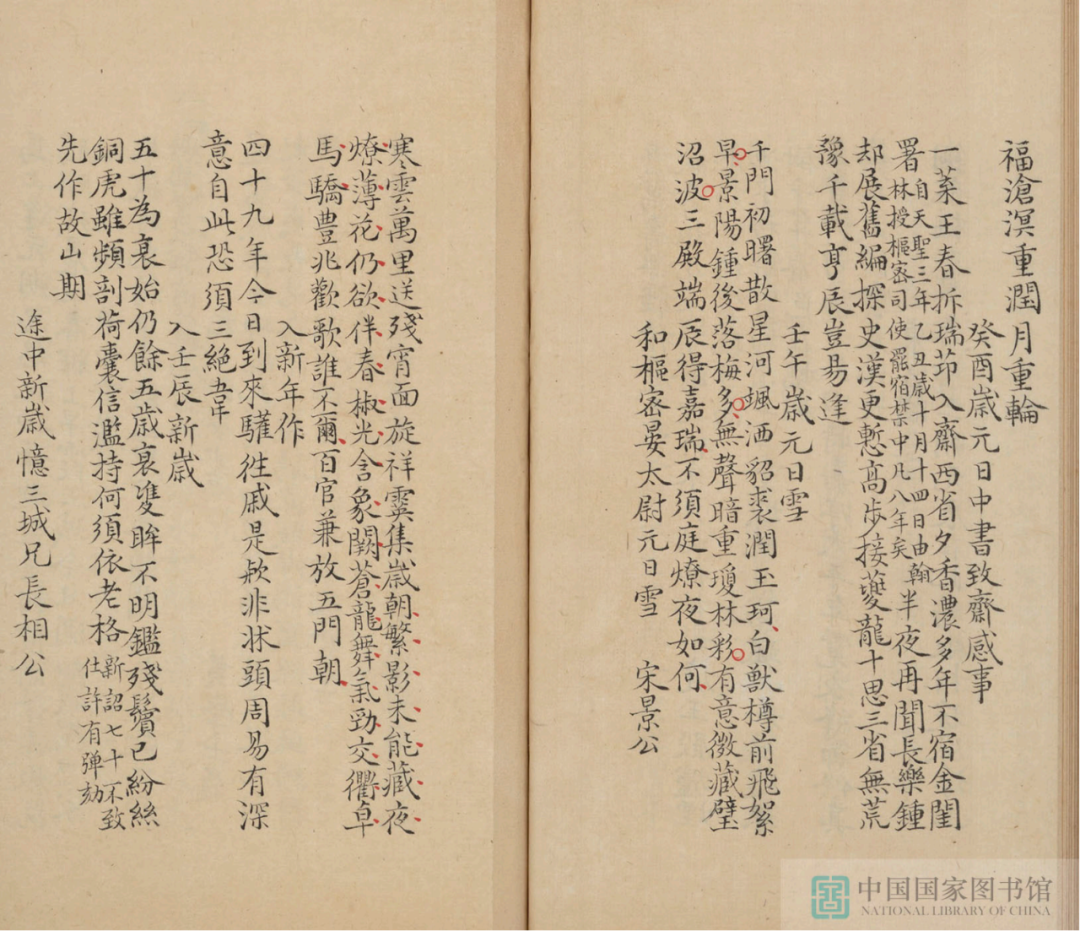 福滄溟重潤月重輪
癸酉歲元日中書致齋感事
一葉王春拆瑞茆入齋西省夕香濃多年不宿金閨
署自天聖三年乙丑歲十月十四日由翰
林授樞密司使罷宿禁中凡八年矣半夜再聞長樂鍾
却展舊編探史漢更慙高步接夔龍十思三省無荒
豫千載亨辰豈易逢
壬午歲元日雪
千門初曙散星河颯洒貂裘潤玉珂白獸樽前飛絮
早景陽鍾後落梅多無聲暗重瓊林彩有意微藏璧
沼波三殿端辰得嘉瑞不須庭燎夜如何
和樞密晏太尉元日雪 宋景公
寒雲萬里送殘宵面旋祥霙集歲朝繁影未能藏夜
燎薄花仍欲伴春椒光含象闕蒼龍舞氣勁交衢卓
馬驕豐兆歡歌誰不爾百官兼放五門朝
入新年作
四十九年今日到來驩徃戚是歟非狀頭周易有深
意自此恐須三絕韋
入壬辰新歲
五十為衰始仍餘五歲衰雙眸不明鑑殘鬢已紛絲
銅虎雖頻剖荷囊信濫持何須依老格新詔七十不致
仕許有彈劾
先作故山期
途中新歲憶三城兄長相公
中国国家图书馆
NATIONAL LIBRARY OF CHINA